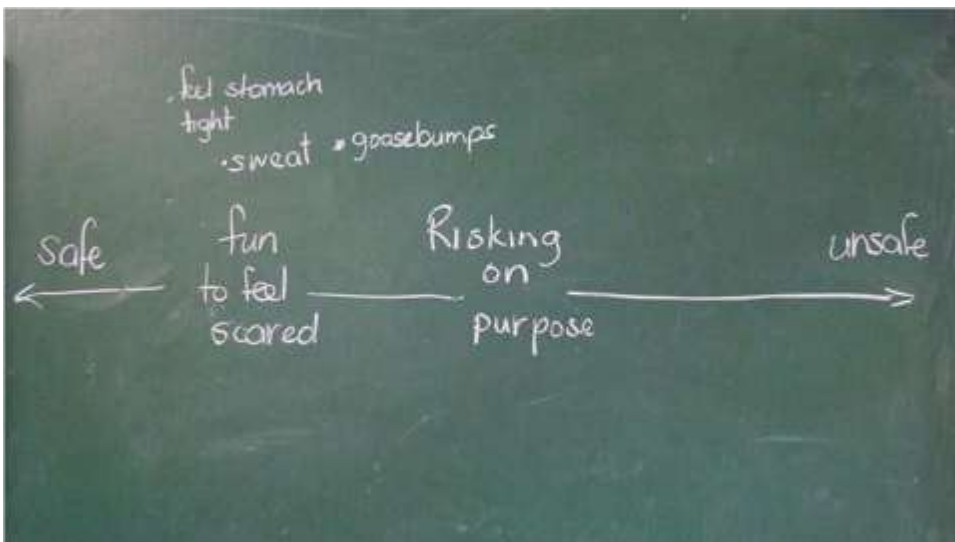 • feel stomach
tight
• sweat • goosebumps
safe
fun
to feel
scared
Risking
on
purpose
unsafe